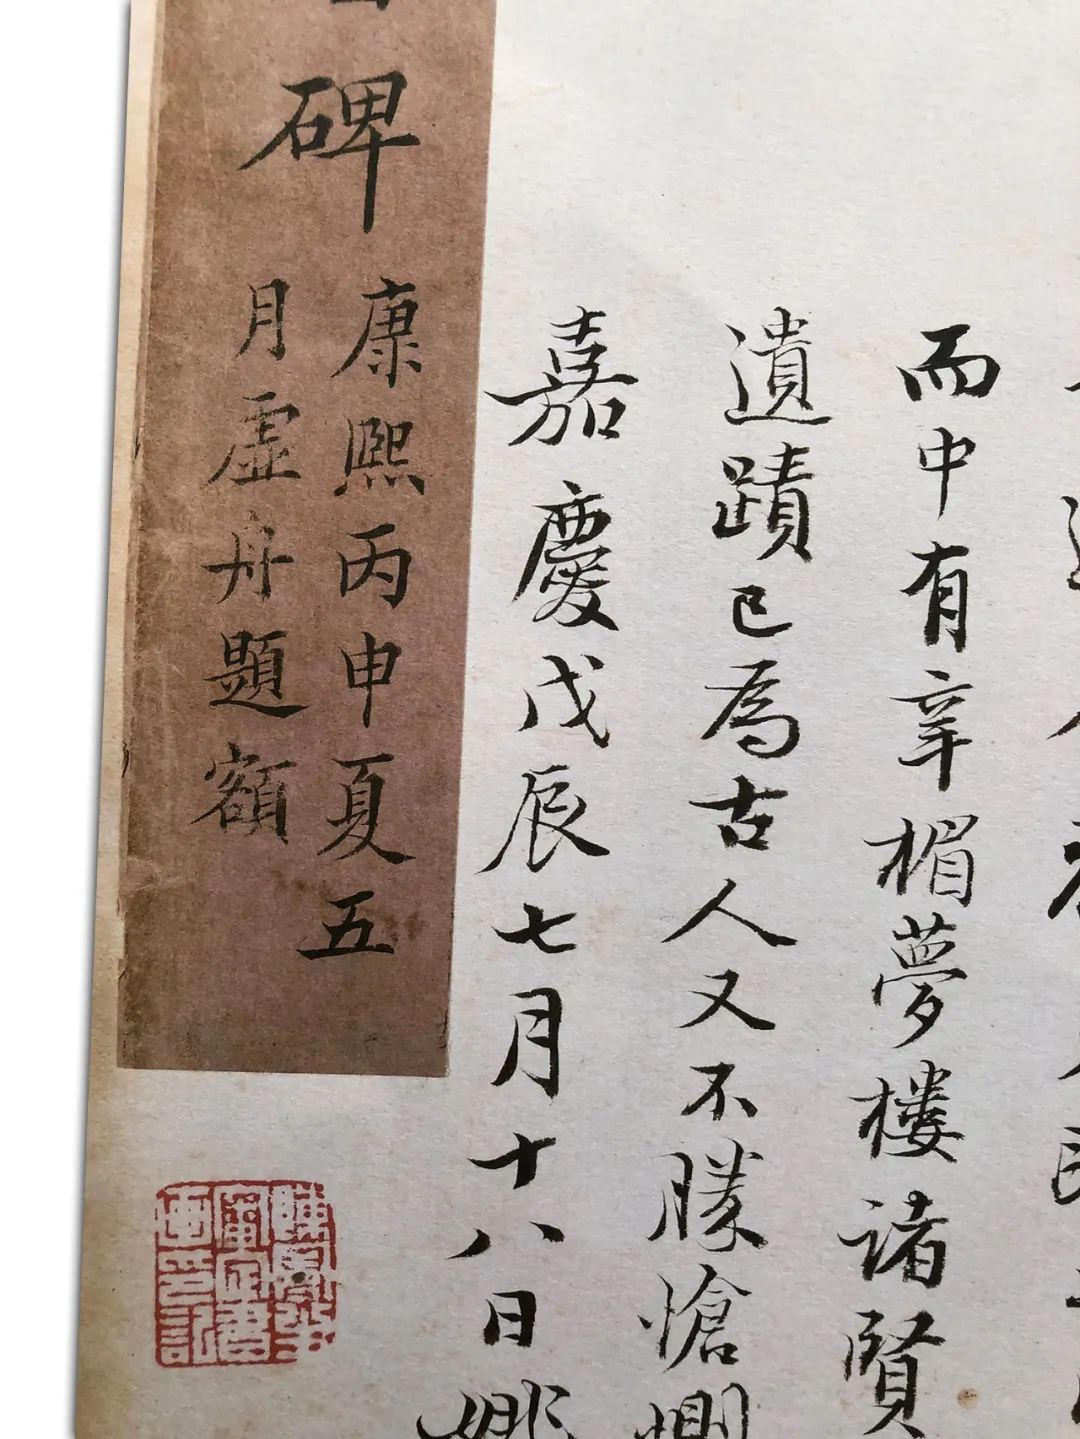 而中有辛楣夢樓諸賢
遺蹟已為古人又不勝愴惻
嘉慶戊辰七月十八日姚
碑
康熙丙申夏五
月虛舟題額